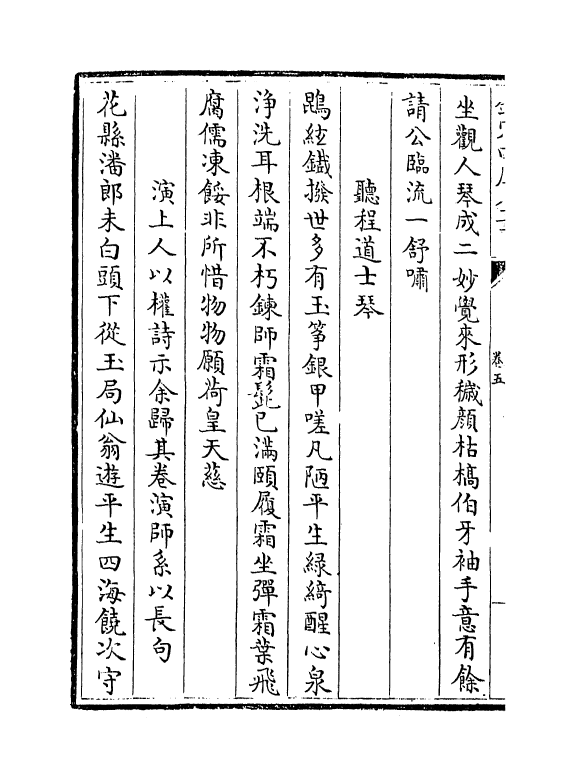 坐觀人琴成二妙覺來形穢顔枯槁伯牙袖手意有餘
請公臨流一舒嘯
聽程道士琴
鵾絃鐡撥世多有玉筝銀甲嗟凡陋平生緑綺醒心泉
浄洗耳根端不朽鍊師霜髭已滿頤履霜坐彈霜葉飛
腐儒凍餒非所惜物物願荷皇天慈
演上人以權詩示余歸其卷演師系以長句
花縣潘郎未白頭下從玉局仙翁遊平生四海饒次守
卷五